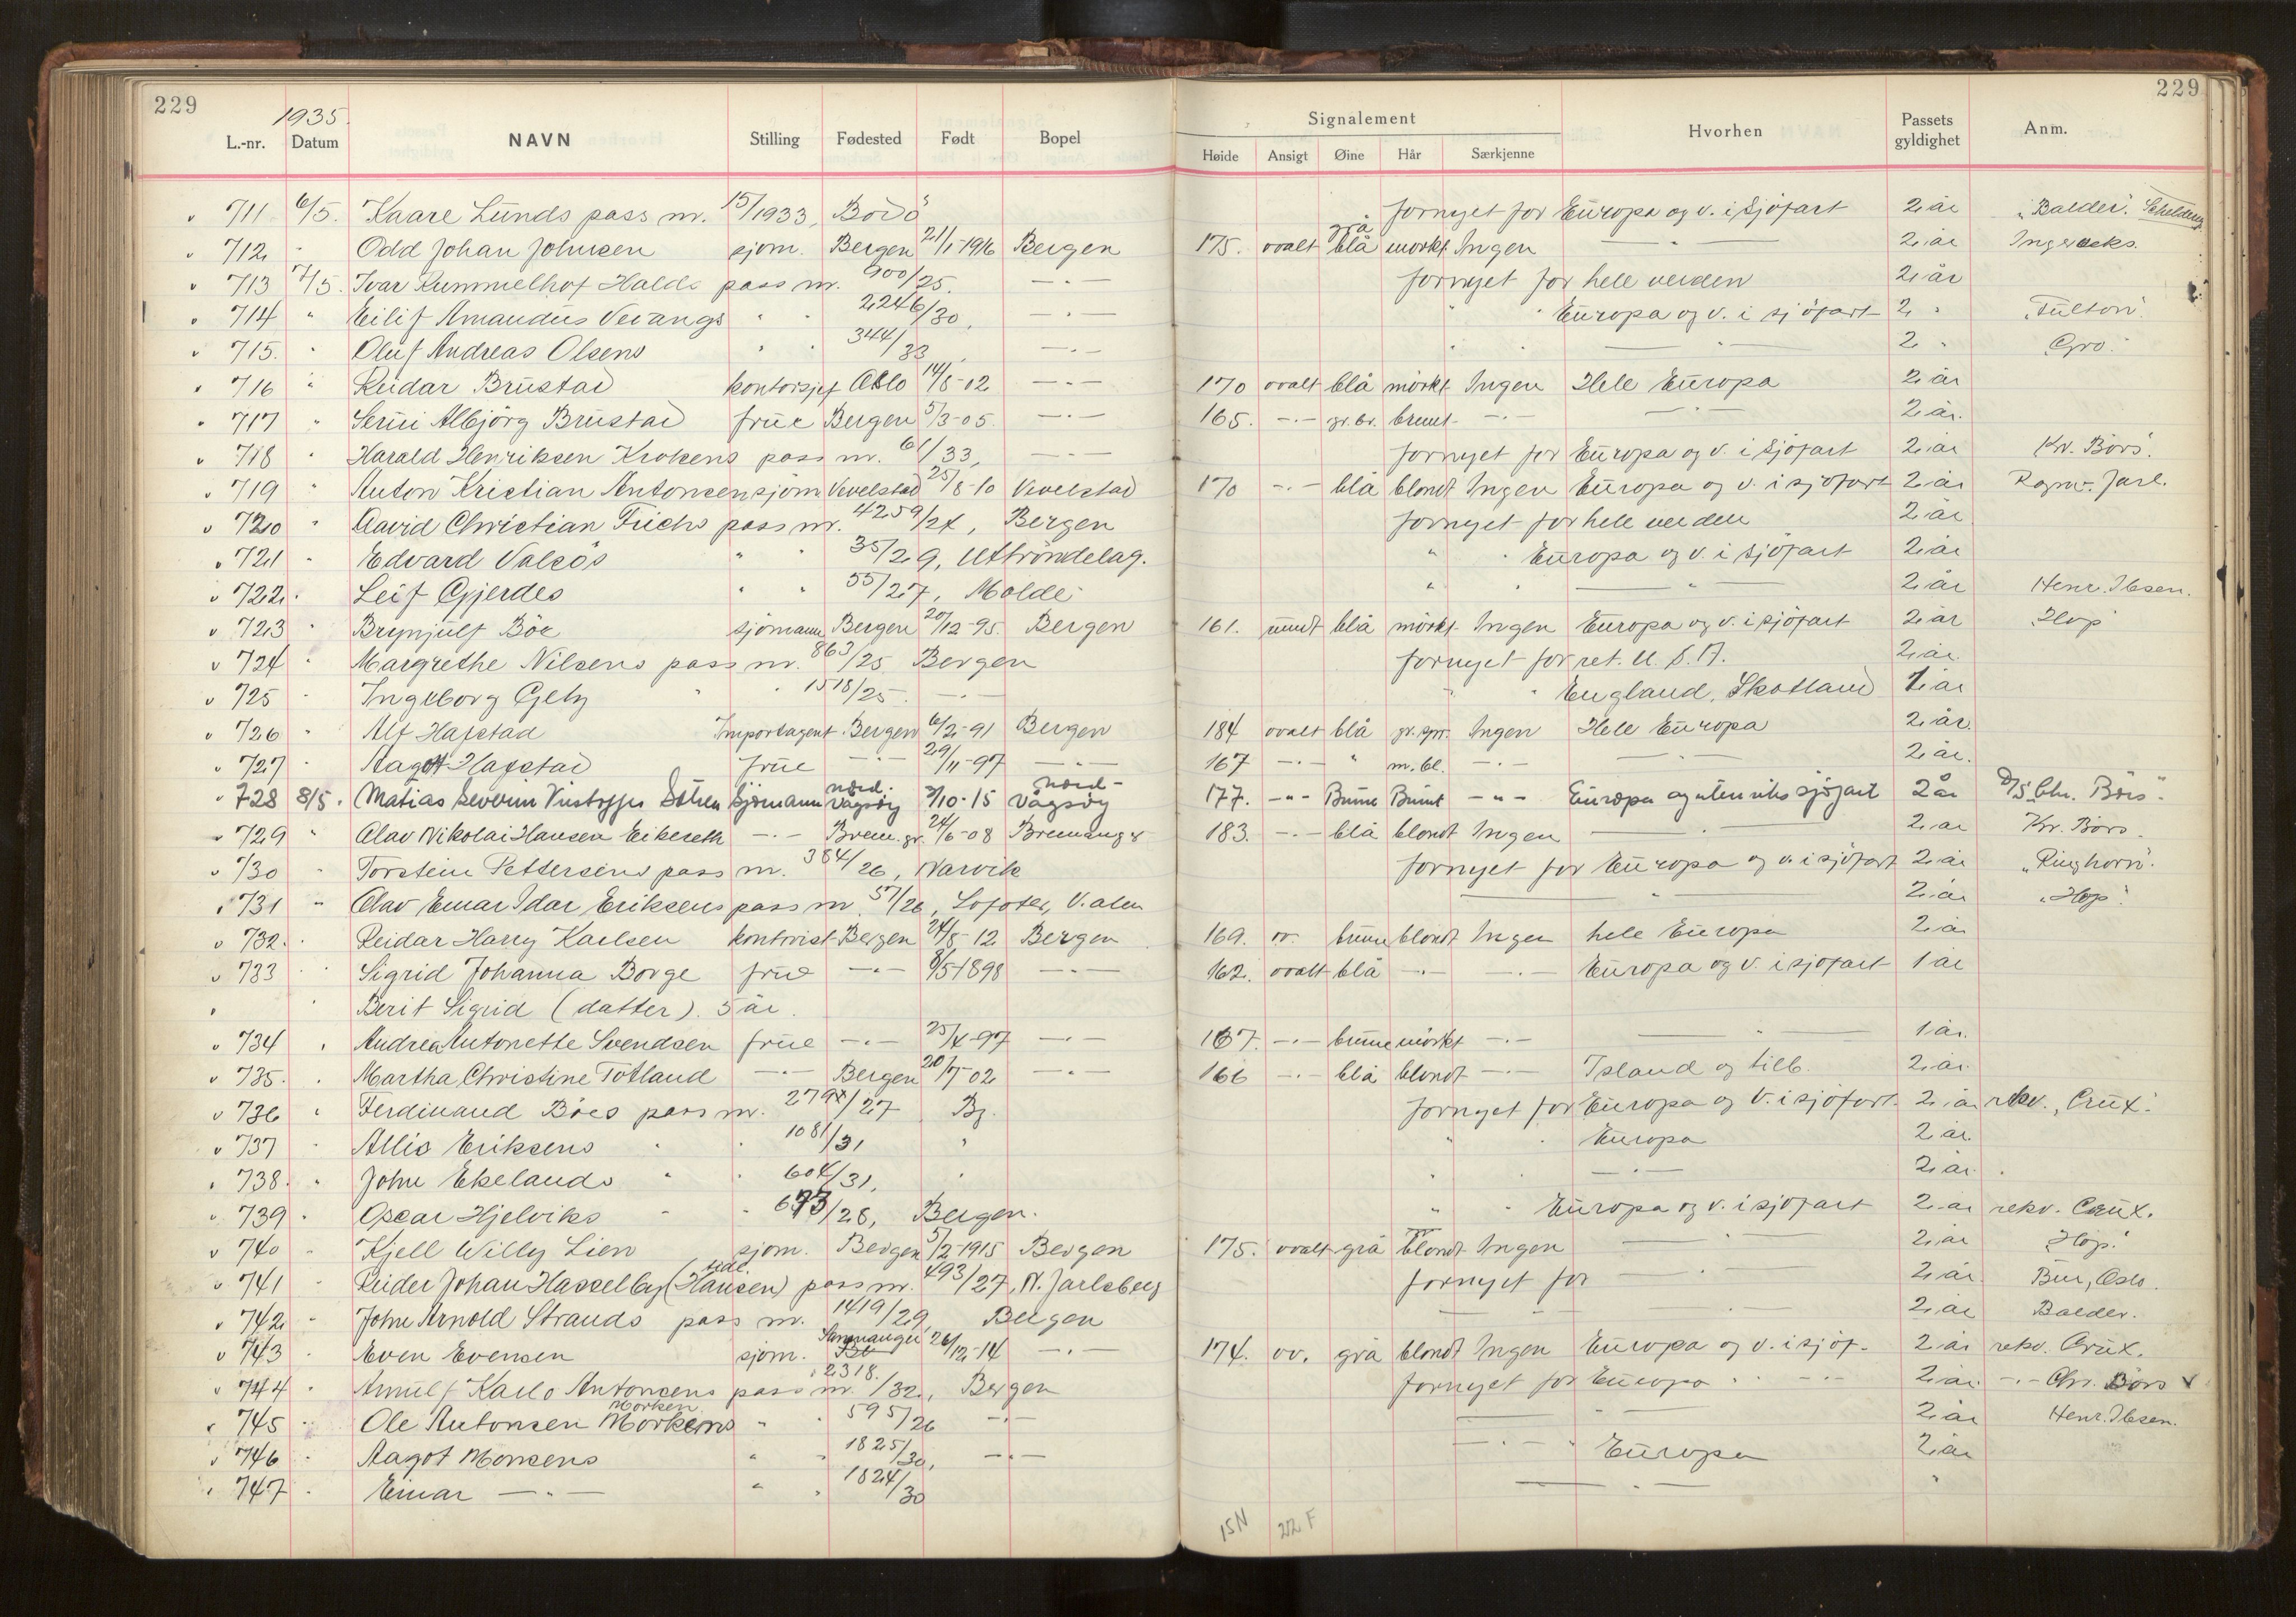 229 229
1935.
L.-nr. Datum NAVN Stilling Fødested Født Bopel Signalement Høide Ansigt Øine Hår Særkjenne Hvorhen Passets gyldighet Anm.
711 6/5. Kaare Lunds pass nr. 15/1933, Bodö fornyet for Europa og v. i sjöfart 2 år "Balder".
712 " Odd Johan Johnsen sjöm. Bergen 21/1-1916 Bergen 175. ovalt grå blå mörkt Ingen — " — 2 år
713 7/5. Ivar Rummelhof Halds pass nr. 900/25. — " — fornyet for hele verden 2 år
714 " Eilif Amandus Vevangs " " 2246/30, — " — " " Europa og v. i sjöfart 2 " "Fulton".
715. " Oluf Andreas Olsens " " 344/33, — " — " " — " — 2 " "Gro".
716 " Reidar Brustad kontorsjef Oslo 14/8-02 — " — 170 ovalt blå mörkt Ingen Hele Europa 2 år
717 " Albjörg Brustad frue Bergen 5/3-05. — " — 165. — " — gr. br. brunt — " — — " — 2 år.
718 " Harald Henriksen Krokens pass nr. 61/33, — " — fornyet for Europa og v. i sjöfart 2 år Kr. Börs".
719 " Anton Kristian Antonsen sjöm Vevelstad 25/8-10 Vevelstad 170 — " — blå blondt Ingen Europa og v. i sjöfart 2 år Ragnv. Jarl.
720 " David Christian Frichs pass nr. 4259/24, Bergen fornyet for hele verden 2 år
721 " Edvard Valsös " " 35/29, Uttröndelag. " " Europa og v. i sjöfart 2 år
722 " Leif Gjerdes " " 55/27, Molde " " — " — 2 år Henr. Ibsen.
723 " Brynjulf Böe sjömann Bergen 20/12-95. Bergen 161. rundt blå mörkt Ingen Europa og v. i sjöfart 2 år "Hop"
724 " Margrethe Nilsens pass nr. 863/25 Bergen fornyet for ret. U.S.A. 2 år.
725 " Ingeborg Getz " " 1518/25. — " — " " England, Skotland 1 år
726 " Alf Hafstad Importagent Bergen 6/2-91 Bergen 184 ovalt blå gr. spr. Ingen Hele Europa 2 år.
727 " Aagot Hafstad frue — " — 29/11-97 — " — 167 — " — " m. bl. — " — — " — 2 år.
728 8/5. Matias Severin Sölen Sjömann nord. Vågsöy 3/10-15 nord- Vågsöy 177. — " — Brune Brunt — " — Europa og utenriks sjöfart 2 år D/S Chr. Börs".
729 " Olav Nikolai Hansen Eikeseth — " — Brem. gr. 24/6-08 Bremanger 183. — " — blå blondt Ingen — " — 2 år Kr. Börs.
730 " Torstein Pettersens pass nr. 384/26, Narvik fornyet for Europa og v. i sjöfart 2 år "Ringhorn".
731 " Olav Einar Idar Eriksens pass nr. 57/26, Lofoten, V.ålen — " — 2 år "Hop".
732. " Reidar Harry Karlsen kontorist Bergen 24/8-12 Bergen 169. ov. brune blondt Ingen hele Europa 2 år
733 " Sigrid Johanna Borge frue — " — 8/5-1898 — " — 162. ovalt blå — " — — " — Europa og v. i sjöfart 1 år
" Berit Sigrid (datter). 5 år.
734 " Andrea Antonette Svendsen frue — " — 25/4-97 — " — 167. — " — brune mörkt — " — — " — 1 år.
735. " Martha Christine Totland — " — Bergen 20/7-02 — " — 166 — " — blå blondt — " — Island og tilb. 2 år.
736 " Ferdinand Böes pass nr. 2794/27 Bg. fornyet for Europa og v. i sjöfart. 2 år rekv. "Crux".
737 " Allis Eriksens " " 1081/31 " " " Europa 2 år.
738. " John Ekelands " " 604/31, " " " — " — 2 år.
739 " Oscar Hjelviks " " 673/28, Bergen. " " Europa og v. i sjöfart 2 år rekv. Crux.
740 " Kjell Willy Lien sjöm. Bergen 5/2-1915 Bergen 175. ovalt grå blondt Ingen — " — 2 år "Hop".
741 " Reider Johan Hasselby (tidl. Hansen) pass nr. 493/27, N. Jarlsberg fornyet for — " — 2 år Bur, Oslo.
742 " John Arnold Strands pass nr. 1419/29, Bergen — " — — " — 2 år Balder.
743 " Even Evensen sjöm. Samnanger 26/12-14 — " — 174. ov. grå blondt Ingen Europa og v. i sjöf. 2 år rekv. Crux.
744 " Arnulf Karlo Antonsens pass nr. 2318./32., Bergen fornyet for Europa " " — " — 2 år. — " — Chr. Börs x
745 " Ole Antonsen Morkens Morken " " 595/26 — " — — " — 2 år Henr. Ibsen.
746 " Aagot Monsens " " 1825/30, — " — — " — " Europa 2 år
747 " Einar — " — " " 1824/30 — " — "
15N 212 F